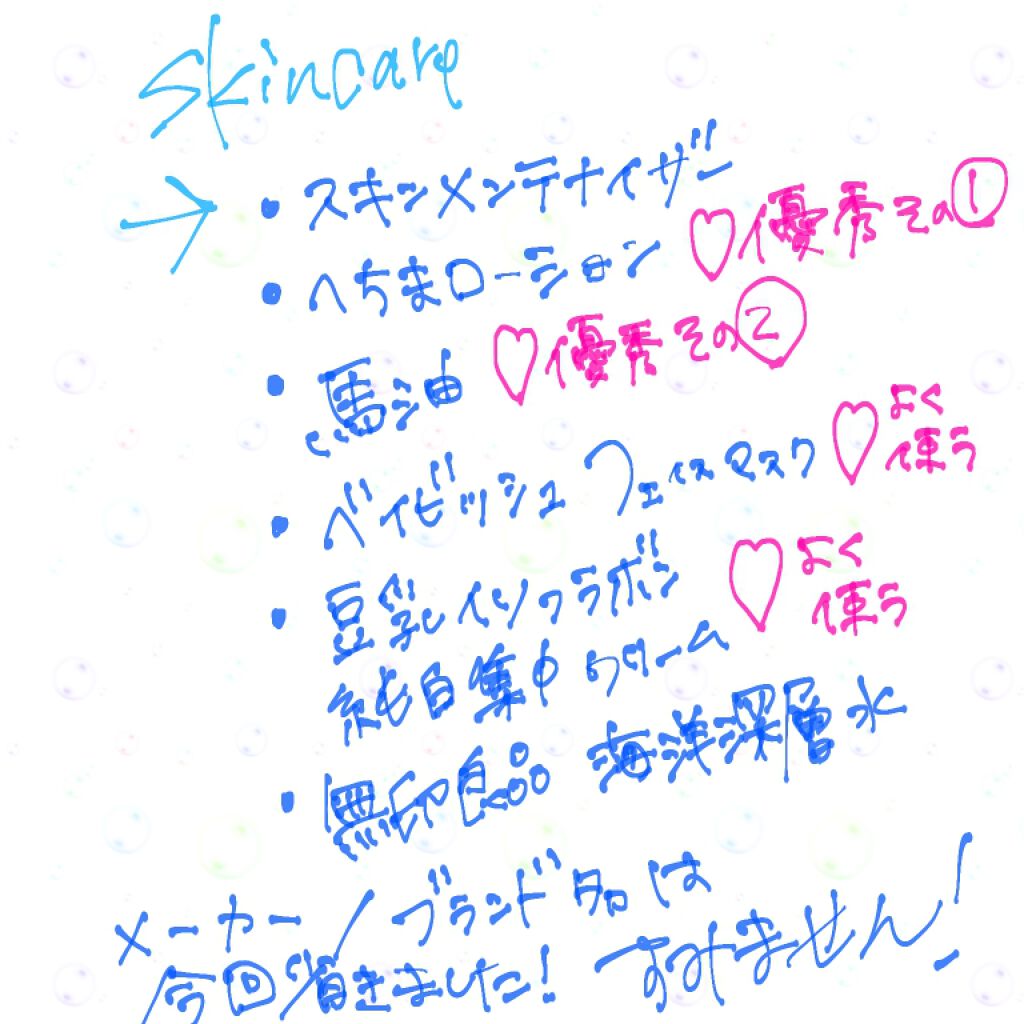 skincare
→ ・スキンメンテナイザー
・へちまローション ♡優秀その①
・馬油 ♡優秀その②
・ベイビッシュ フェイスマスク ♡よく使う
・豆乳イソフラボン ♡よく使う
純白集中クリーム
・無印良品 海洋深層水
メーカー/ブランド名は
今回省きました! すみません!